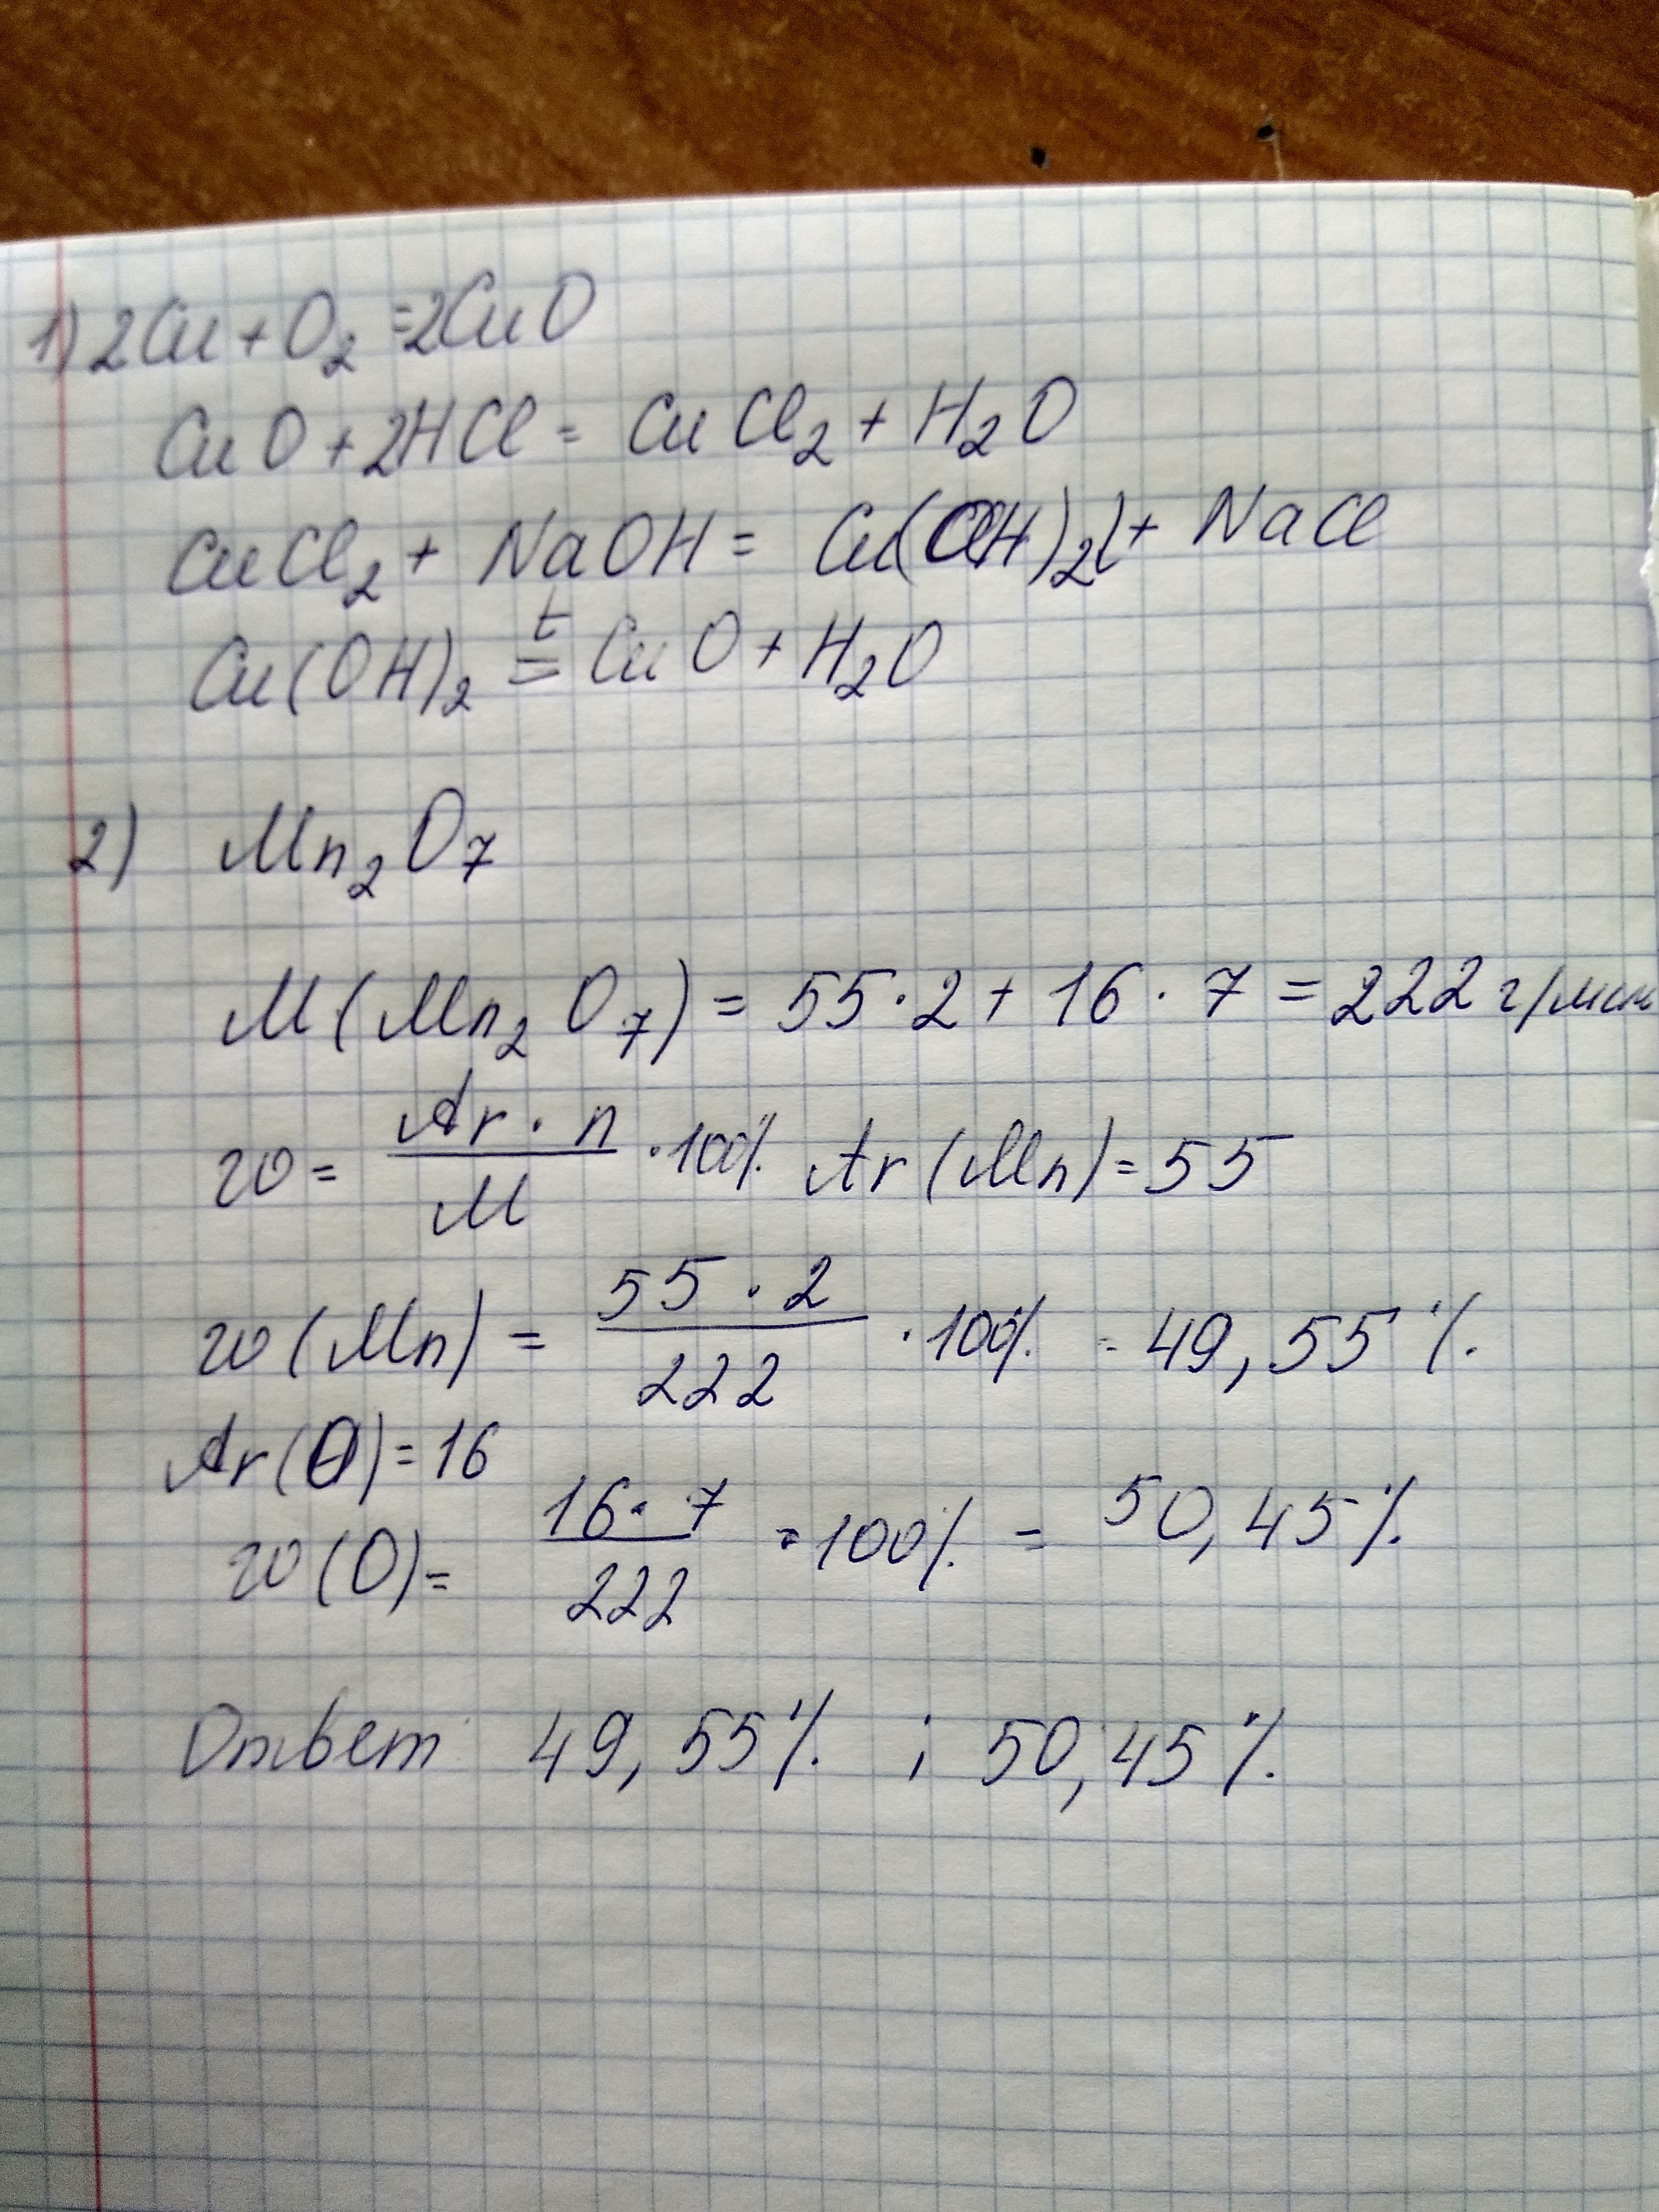 1) 2Cu + O₂ = 2CuO
CuO + 2HCl = CuCl₂ + H₂O
CuCl₂ + NaOH = Cu(OH)₂↓ + NaCl
Cu(OH)₂ =ᵗ CuO + H₂O
2) Mn₂O₇
M(Mn₂O₇) = 55·2 + 16·7 = 222 г/моль
w = Ar·n / M ·100% Ar(Mn) = 55
w(Mn) = 55·2 / 222 ·100% = 49,55%
Ar(O) = 16
w(O) = 16·7 / 222 ·100% = 50,45%
Ответ 49,55% ; 50,45%